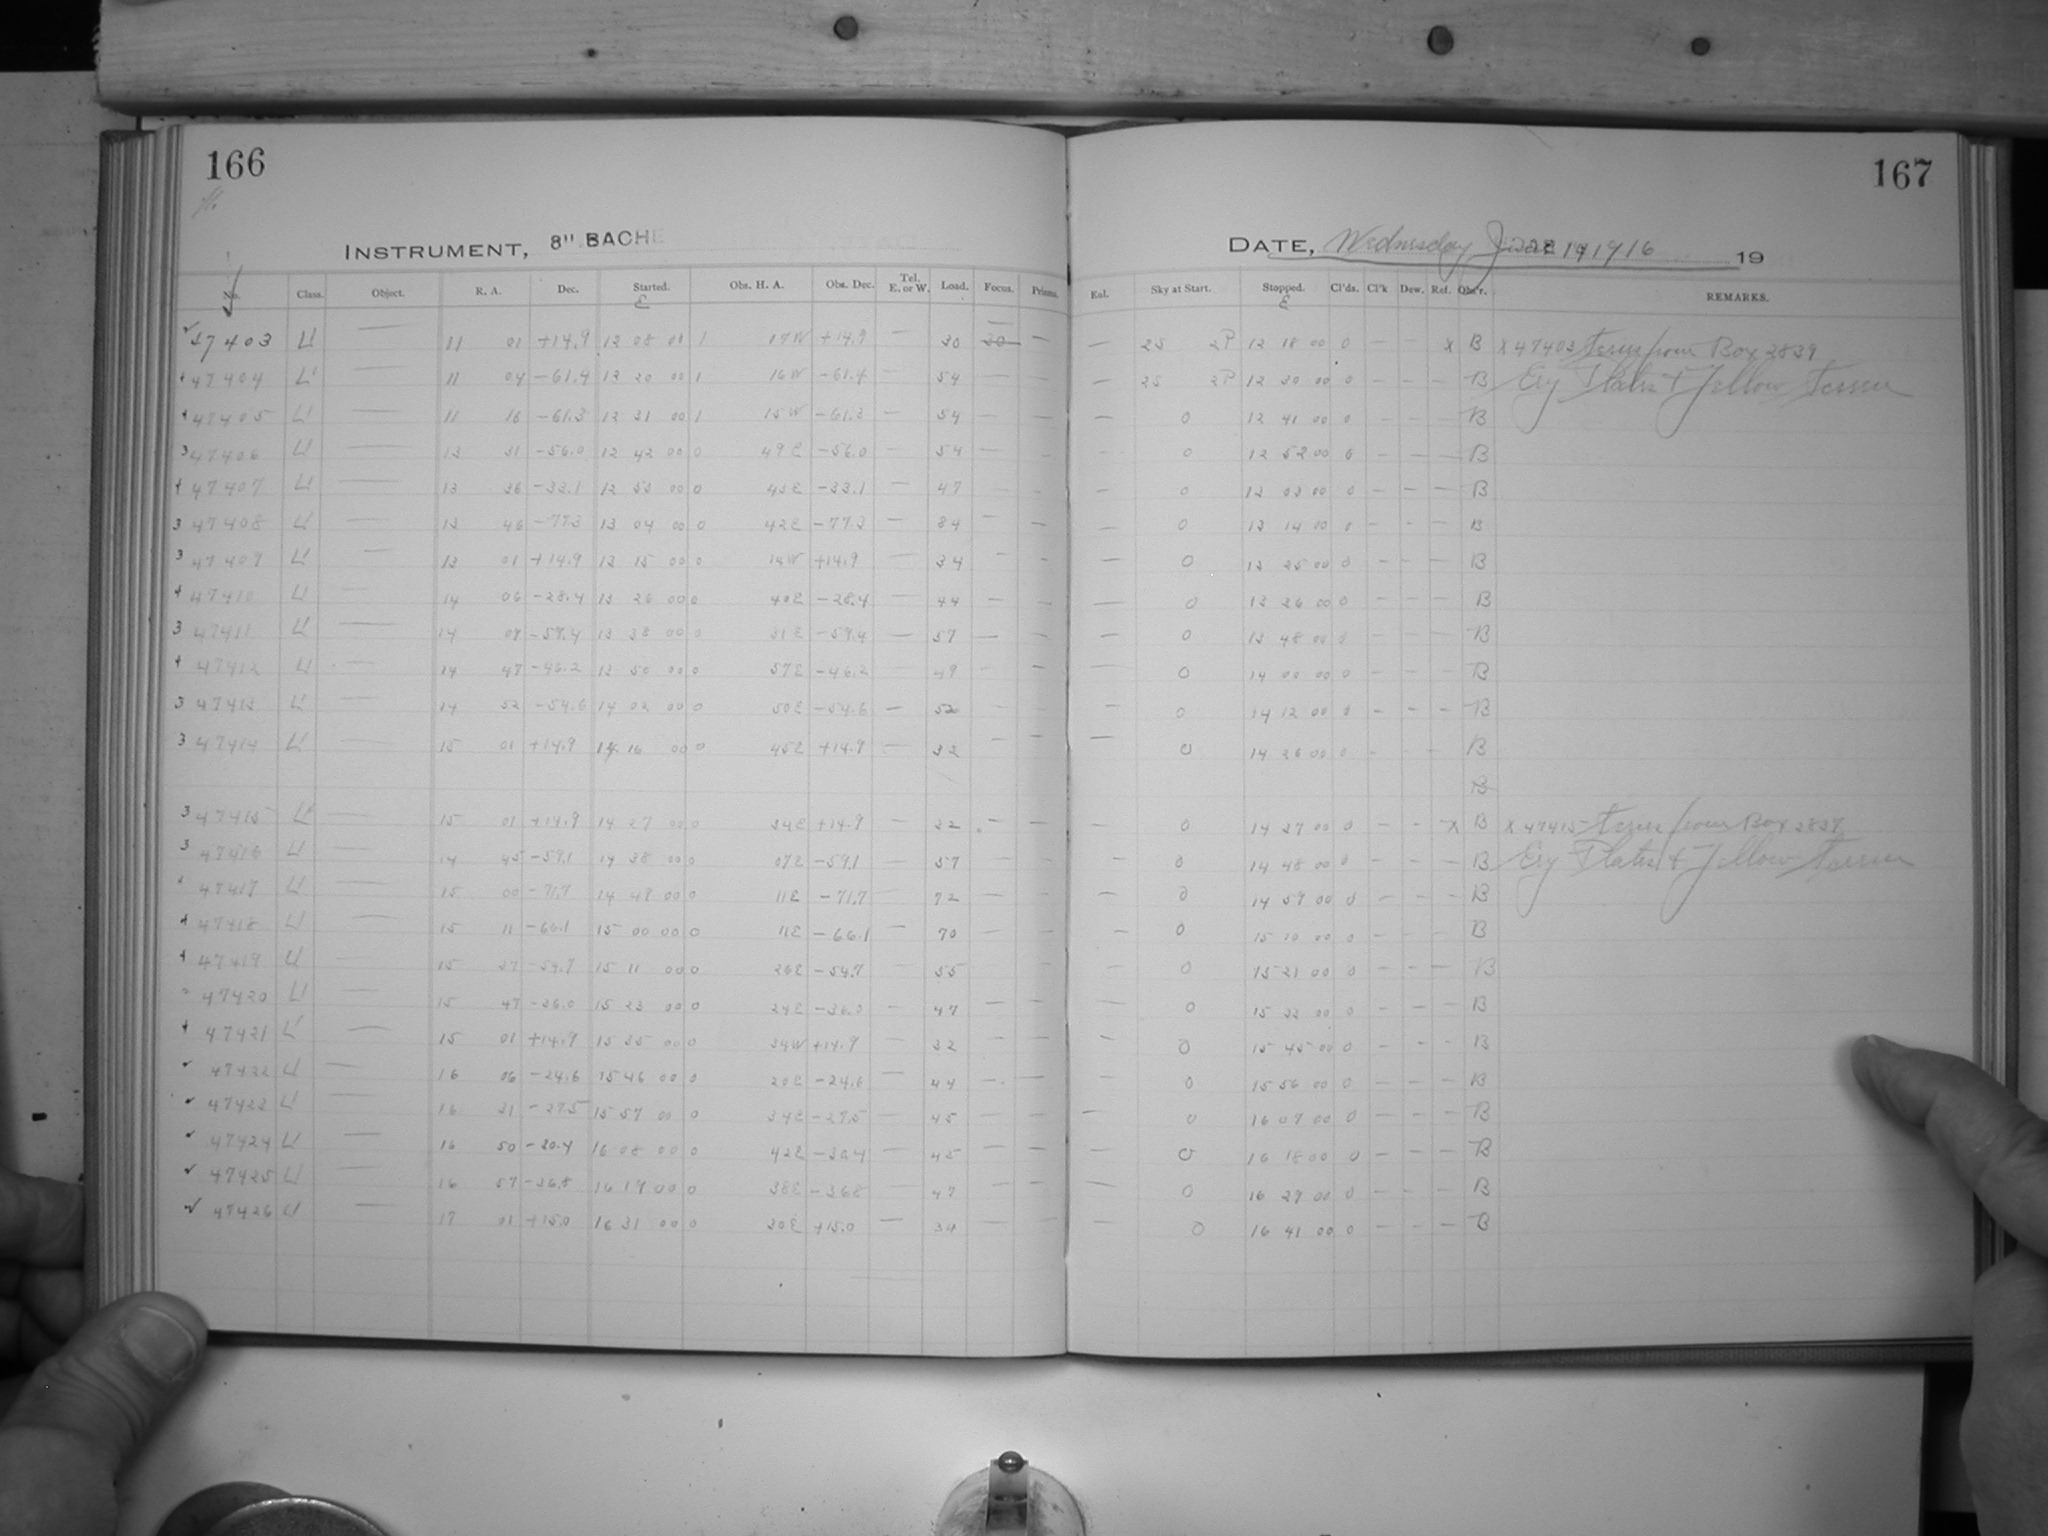 166
INSTRUMENT, 8" BACHE
No. Class. Object. R. A. Dec. Started. Obs. H. A. Obs. Dec. Tel. E. or W. Load. Focus. Prisms.
E
47403 L' — 11 01 +14.9 12 08 00 1 07W +14.9 — 30 30 —
47404 L' — 11 04 -61.4 12 20 00 1 16W -61.4 — 54 — —
47405 L' — 11 16 -61.3 12 31 00 1 15W -61.3 — 54 — —
47406 L' — 13 31 -56.0 12 42 00 0 49E -56.0 — 54 — —
47407 L' — 13 36 -33.1 12 53 00 0 43E -33.1 — 47 — —
47408 L' — 13 46 -77.3 13 04 00 0 42E -77.3 — 84 — —
47409 L' — 13 01 +14.9 13 15 00 0 14W +14.9 — 34 — —
47410 L' — 14 06 -28.4 13 26 00 0 40E -28.4 — 44 — —
47411 L' — 14 09 -59.4 13 38 00 0 31E -59.4 — 57 — —
47412 L' — 14 47 -46.2 13 50 00 0 57E -46.2 — 49 — —
47413 L' — 14 52 -54.6 14 02 00 0 50E -54.6 — 52 — —
47414 L' — 15 01 +14.9 14 16 00 0 45E +14.9 — 32 — —
47415 L' — 15 01 +14.9 14 27 00 0 34E +14.9 — 32 — —
47416 L' — 14 45 -59.1 14 38 00 0 07E -59.1 — 57 — —
47417 L' — 15 00 -71.7 14 49 00 0 11E -71.7 — 72 — —
47418 L' — 15 11 -66.1 15 00 00 0 11E -66.1 — 70 — —
47419 L' — 15 37 -54.7 15 11 00 0 26E -54.7 — 55 — —
47420 L' — 15 47 -36.0 15 23 00 0 24E -36.0 — 47 — —
47421 L' — 15 01 +14.9 15 35 00 0 34W +14.9 — 32 — —
47422 L' — 16 06 -24.6 15 46 00 0 20E -24.6 — 44 — —
47423 L' — 16 31 -27.5 15 57 00 0 34E -27.5 — 45 — —
47424 L' — 16 50 -30.4 16 08 00 0 42E -30.4 — 45 — —
47425 L' — 16 57 -36.8 16 19 00 0 38E -36.8 — 47 — —
47426 L' — 17 01 +15.0 16 31 00 0 30E +15.0 — 34 — —
167
DATE, Wednesday June 14 1916 19
Eal. Sky at Start. Stopped. Cl'ds. Cl'k Dew. Ref. Obs'r. REMARKS.
E
— 25 2P 12 18 00 0 — — X B X 47403 from Box 2839
— 25 2P 12 30 00 0 — — — B Ery Plates & Yellow
— 0 12 41 00 0 — — — B
— 0 12 52 00 0 — — — B
— 0 13 03 00 0 — — — B
— 0 13 14 00 0 — — — B
— 0 13 25 00 0 — — — B
— 0 13 36 00 0 — — — B
— 0 13 48 00 0 — — — B
— 0 14 00 00 0 — — — B
— 0 14 12 00 0 — — — B
— 0 14 26 00 0 — — — B
B
— 0 14 37 00 0 — — X B X 47415 from Box 2839
— 0 14 48 00 0 — — — B Ery Plates & Yellow
— 0 14 59 00 0 — — — B
— 0 15 10 00 0 — — — B
— 0 15 21 00 0 — — — B
— 0 15 33 00 0 — — — B
— 0 15 45 00 0 — — — B
— 0 15 56 00 0 — — — B
— 0 16 07 00 0 — — — B
— 0 16 18 00 0 — — — B
— 0 16 29 00 0 — — — B
— 0 16 41 00 0 — — — B